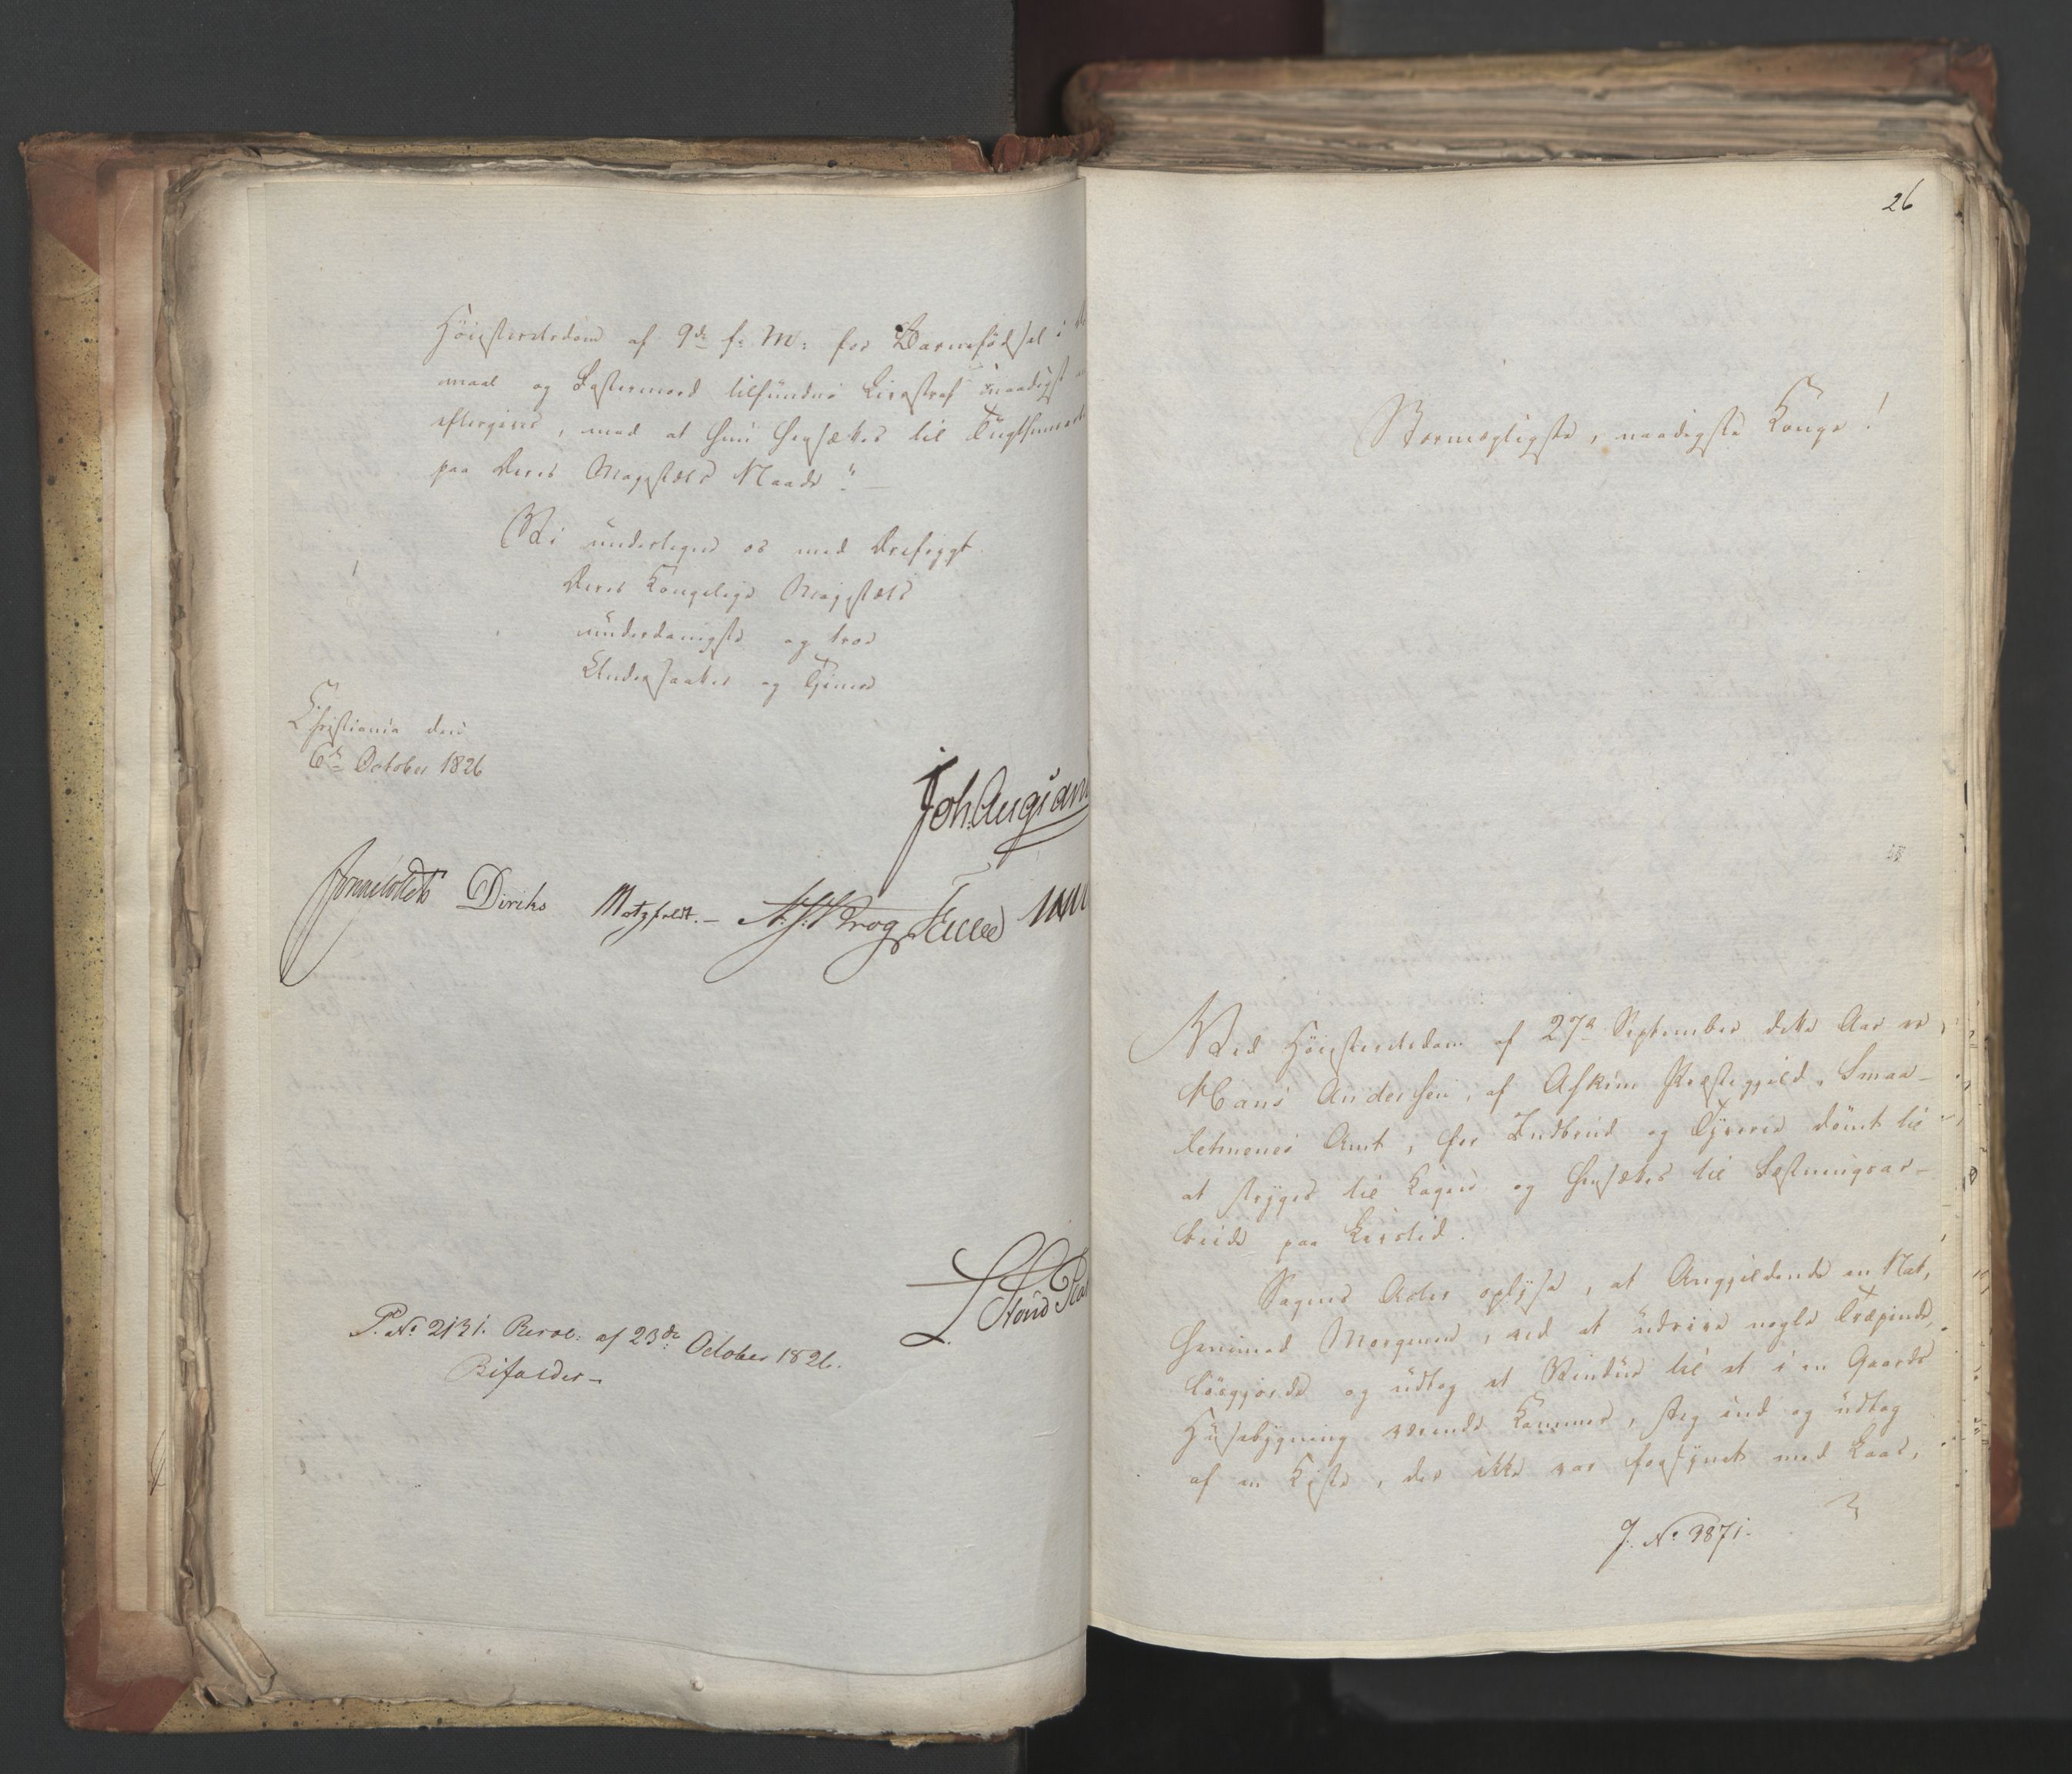 Høiesteretsdom af 9de f: M: for Barnefødsel i
maal og Fostermord tilfundne Livsstraf naadigst
eftergives, mod at hun hensættes til Tugthuusarbeide
paa Deres Majestæts Naade". —
Vi undertegne os med Drefrygt
Deres Kongelige Majestæts
underdanigste og troe
Undersaatter og Tjenere
Christiania den
6te October 1826
Joh. Aug. San
Sommerhielm Diriks Motzfeldt. — A. S. Krog
L. Stoud Pla
P. No 2131. Resol: af 23de October 1826.
Bifaldes —
26
Stormægtigste, naadigste Konge!
Ved Høiesteretsdom af 27de September dette Aar er
Hans Andersen, af Askim Præstegjeld, Smaa-
lehnenes Amt, for Indbrud og Tyverie dømt til
at stryges til Kagen og hensættes til Fæstningsar-
beide paa Livstid.
Sagens Acter oplyse, at Angjeldende en Nat,
henimod Morgenen, ved at udrive nogle Træpinde,
løsgjorde og udtog et Vindue til et i en Gaards
Huusebygning værende Kammer, steg ind og udtog
af en Kiste, der ikke var forsynet med Laas,
J. No 3871.